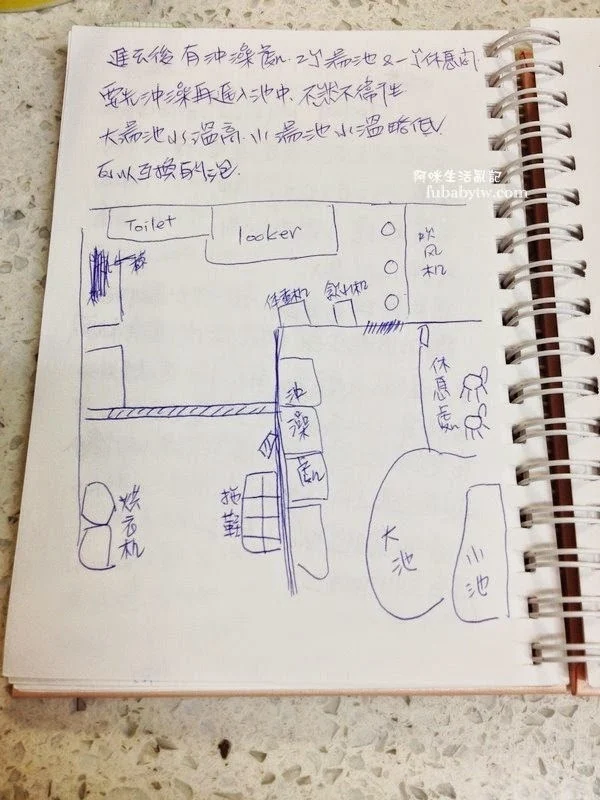 進去後有沖澡處. 2个湯池 & 一个休息內
要先沖澡再進入池中. 不然不衛生
大湯池水溫高. 小湯池水溫略低
可以互換的泡.
阿咪生活亂記
fubabytw.com
Toilet
looker
吹风机
体重机
飲水机
休息處
沖澡處
拖鞋
烘衣机
大池
小池